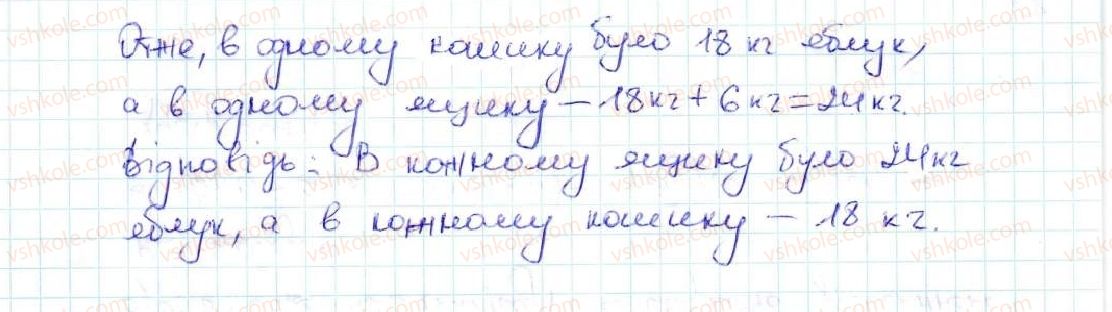 Отже, в одному кошику було 18 кг яблук,
а в одному ящику – 18 кг + 6 кг = 24 кг.
Відповідь: В кожному ящику було 24 кг
яблук, а в кожному кошику – 18 кг.